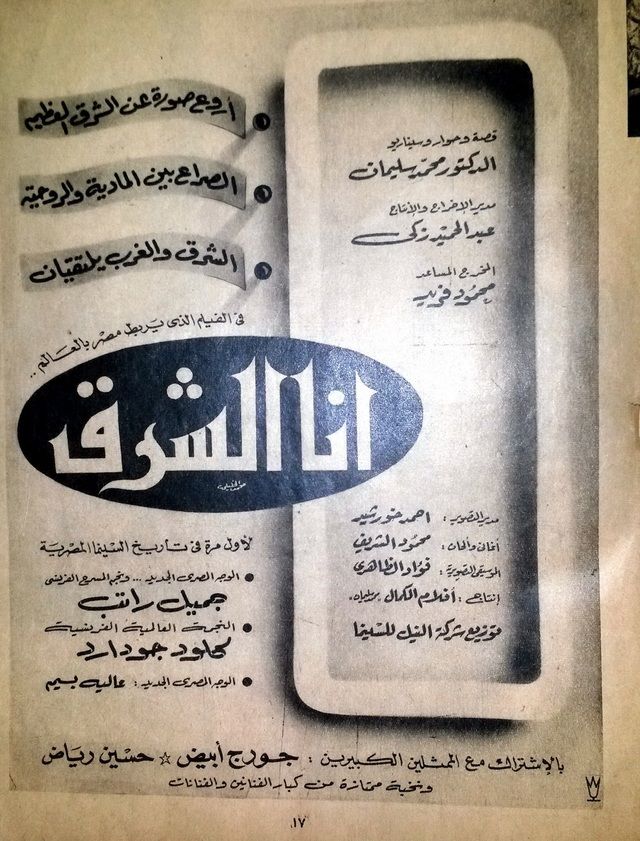 أروع صورة عن الشرق العظيم
الصراع بين المادية والروحية
الشرق والغرب يلتقيان
قصة وحوار وسيناريو
الدكتور محمد سليمان
مدير الإخراج والإنتاج
عبد الحميد زكى
المخرج المساعد
محمود فريد
فى الفيلم الذى يربط مصر بالعالم ..
انا الشرق
مدير التصوير : احمد خورشيد
أغانى وألحان : محمود الشريف
الموسيقى التصويرية : فؤاد الظاهرى
إنتاج : أفلام الكمال
توزيع شركة النيل للسينما
لأول مرة فى تاريخ السينما المصرية
الوجه المصرى الجديد ... ونجم المسرح الفرنسى
جميل راتب
النجمة العالمية الفرنسية
كلود جودارد
الوجه المصرى الجديد : عاليه بسيم
بالإشتراك مع الممثلين الكبيرين : جورج أبيض ☆ حسين رياض
ونخبة ممتازة من كبار الفنانين والفنانات
١٧